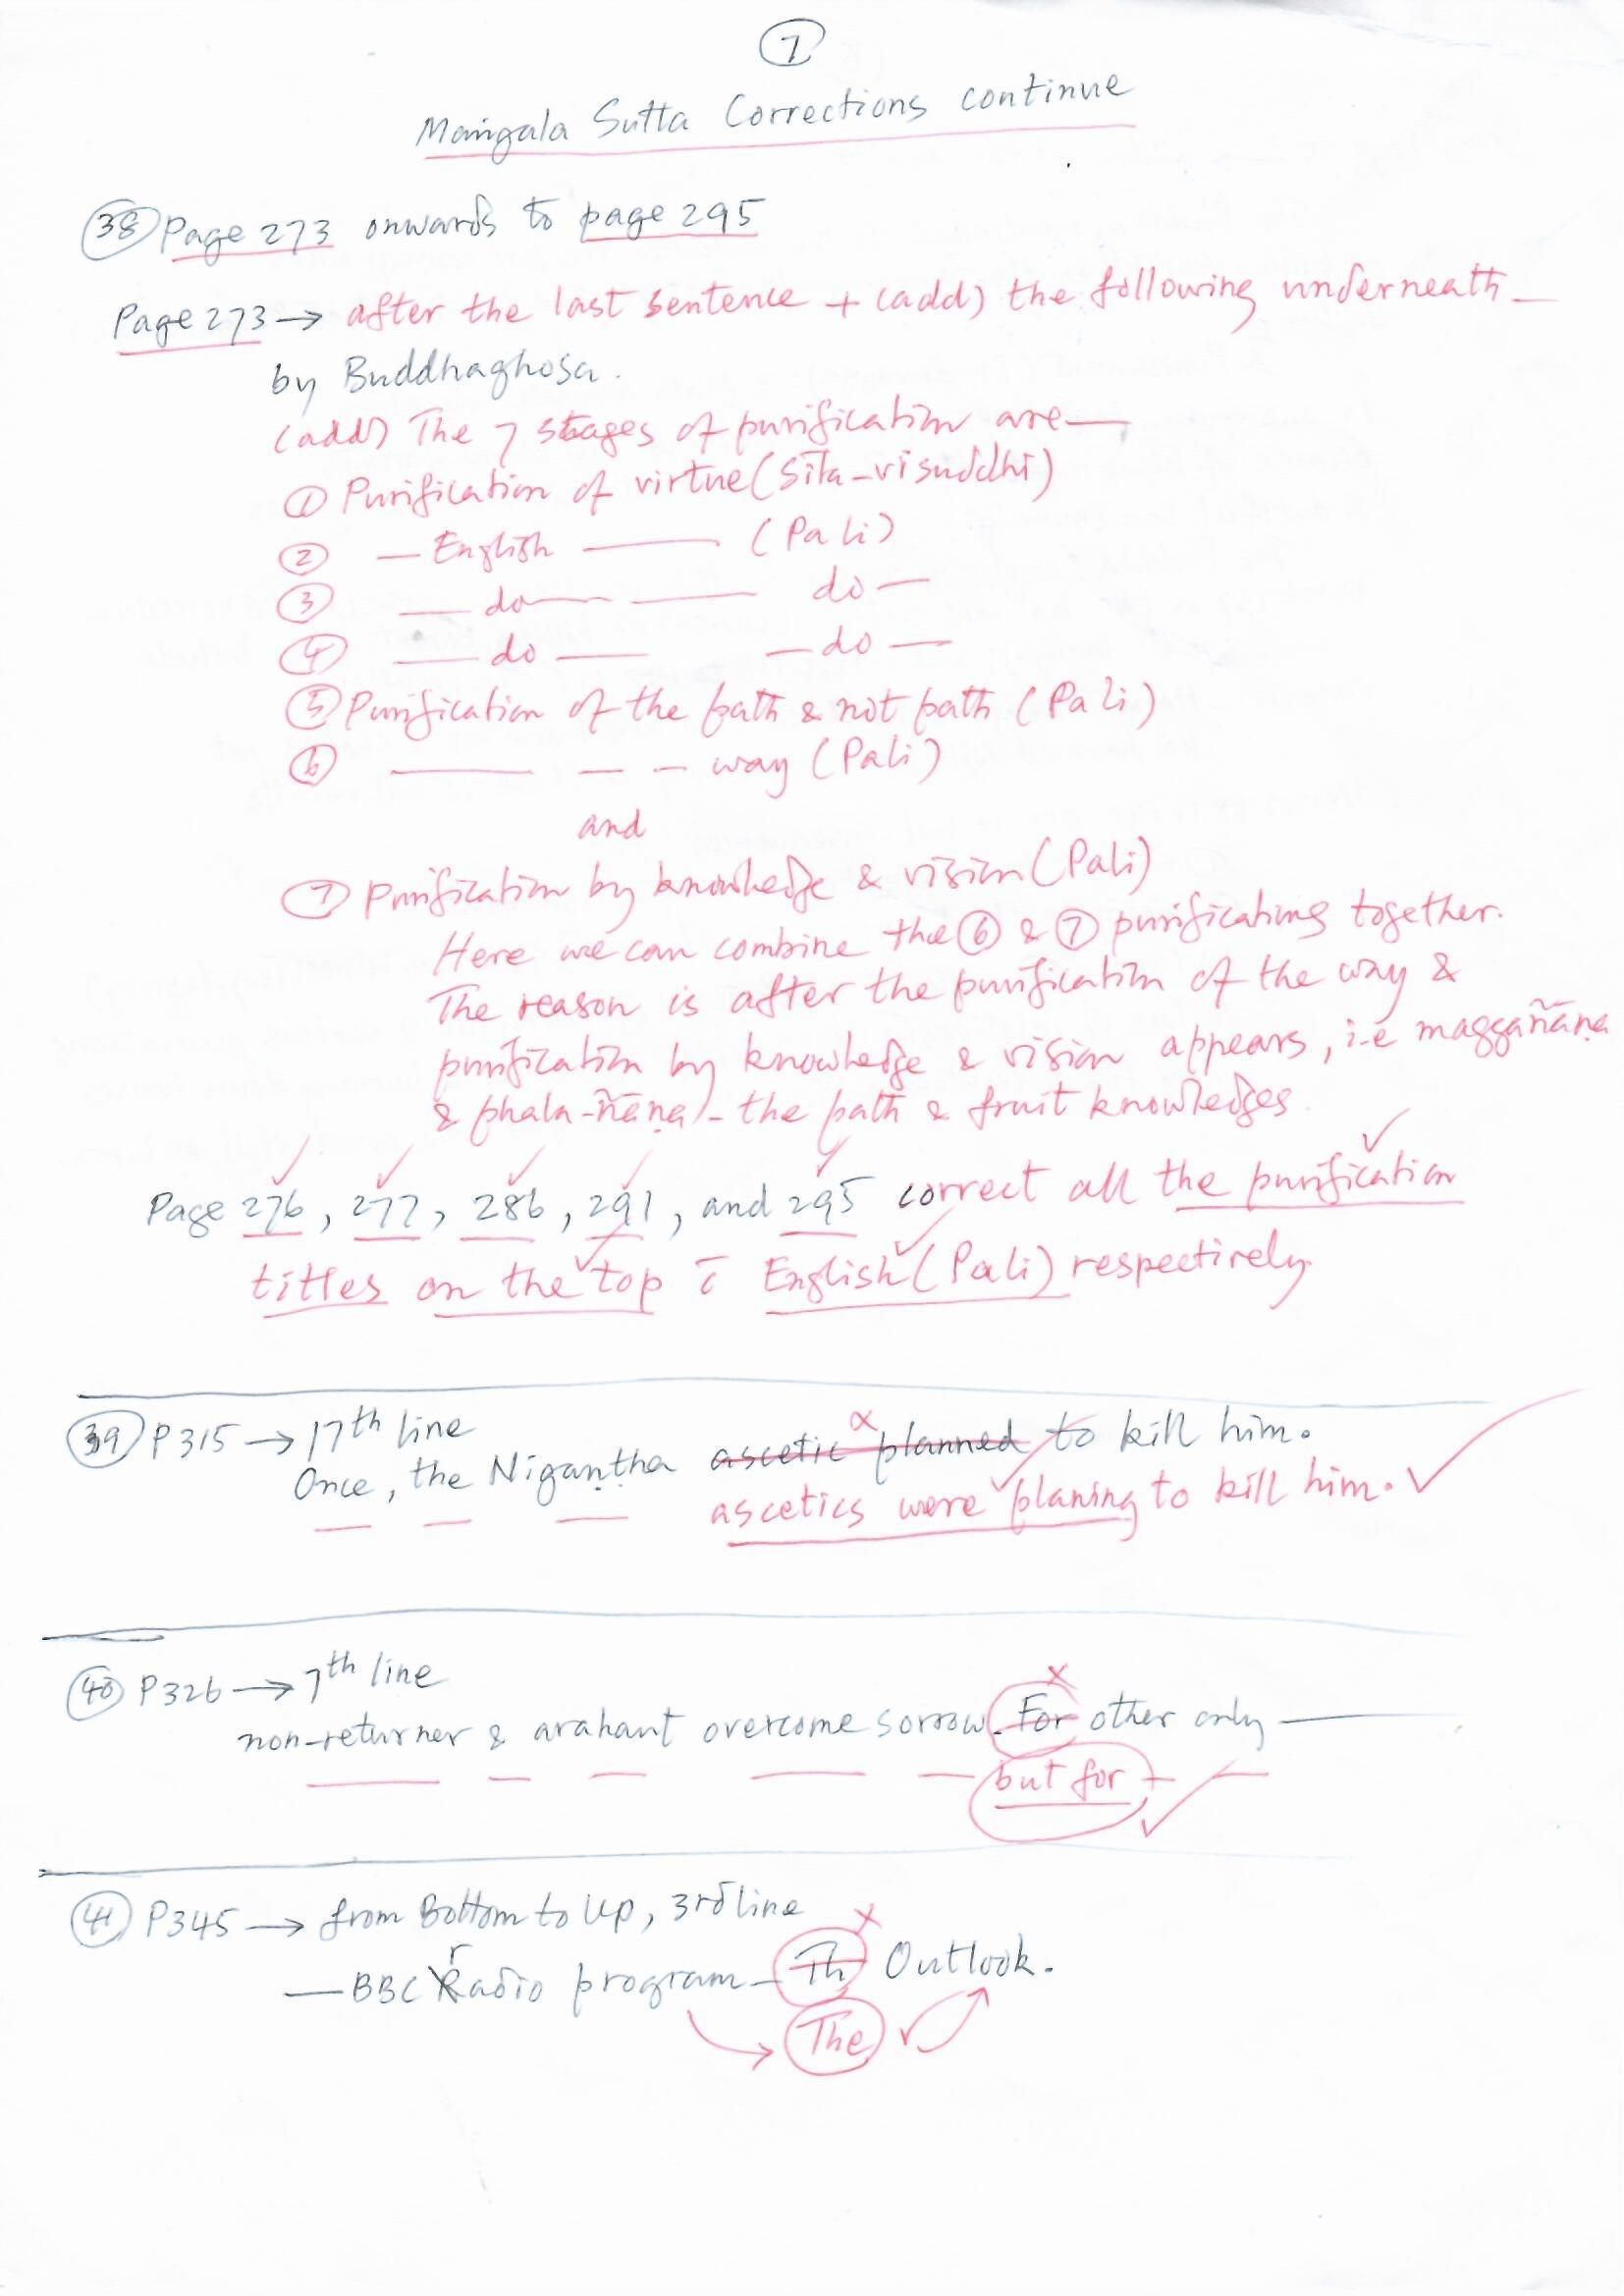 7
Maṅgala Sutta Corrections continue
38 Page 273 onwards to page 295
Page 273 → after the last sentence + (add) the following underneath —
by Buddhaghosa.
(add) The 7 stages of purification are —
① Purification of virtue (Sīla-visuddhi)
② — English — (Pali)
③ — do — — do —
④ — do — — do —
⑤ Purification of the path & not path (Pali)
⑥ — — — way (Pali)
and
⑦ Purification by knowledge & vision (Pali)
Here we can combine the ⑥ & ⑦ purifications together.
The reason is after the purification of the way &
purification by knowledge & vision appears, i.e maggañāṇa
& phala-ñāṇa) - the path & fruit knowledges.
Page 276, 277, 286, 291, and 295 correct all the purification
titles on the top c̄ English (Pali) respectively.
39 P315 → 17th line
Once, the Nigaṇṭha ascetic planned to kill him.
ascetics were planing to kill him.
40 P326 → 7th line
non-returner & arahant overcome sorrow. For other only —
but for
41 P345 → from Bottom to Up, 3rd line
r
— BBC Radio program - Th Outlook.
The